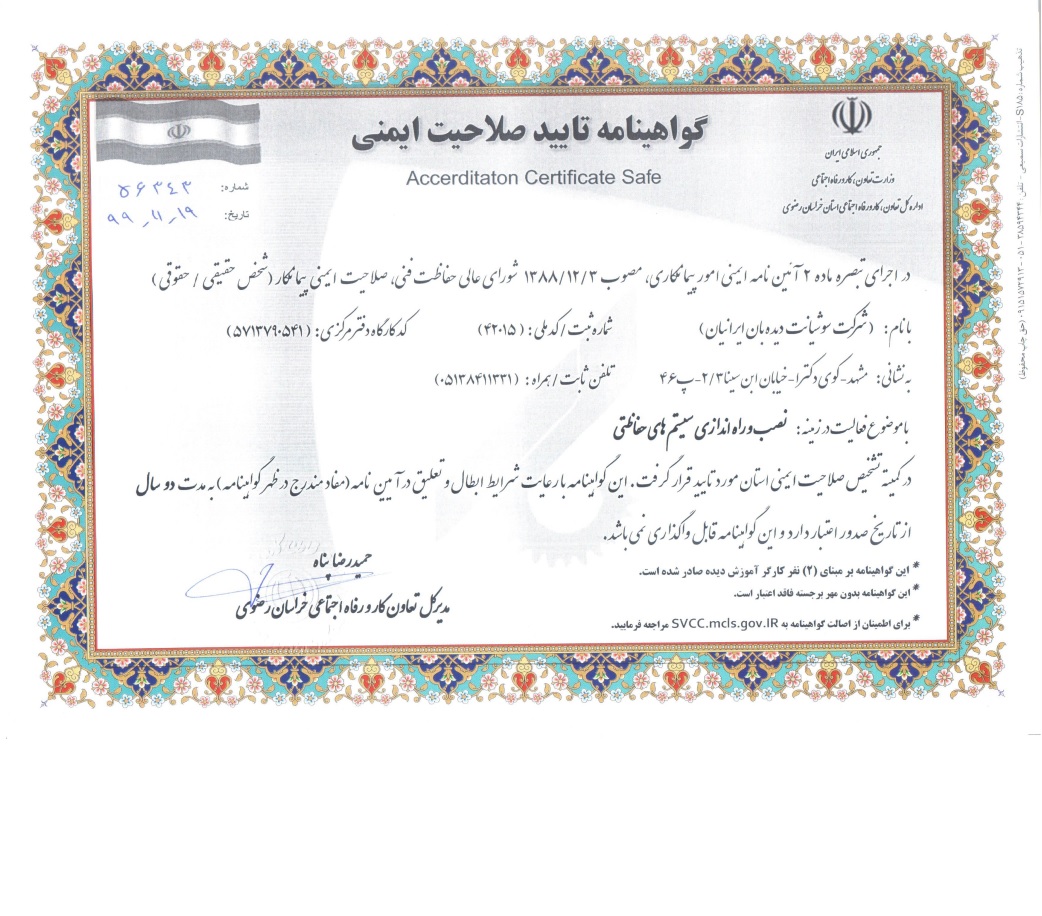 گواهینامه تایید صلاحیت ایمنی
Accerditaton Certificate Safe
جمهوری اسلامی ایران
وزارت تعاون، کار و رفاه اجتماعی
اداره کل تعاون، کار و رفاه اجتماعی استان خراسان رضوی
شماره: ۵۶۳۴۳
تاریخ: ۹۹_۱۱_۱۹
در اجرای تبصره ماده ۲ آئین نامه ایمنی امور پیمانکاری، مصوب ۱۳۸۸/۱۲/۳ شورای عالی حفاظت فنی، صلاحیت ایمنی پیمانکار (شخص حقیقی / حقوقی)
بانام: (شرکت سوشیانت دیده بان ایرانیان) شماره ثبت/کد ملی: (۴۲۰۱۵) کد کارگاه دفتر مرکزی: (۵۷۱۳۷۹۰۵۴۱)
به نشانی: مشهد-کوی دکترا-خیابان ابن سینا۲/۳-پ۴۶ تلفن ثابت/همراه: (۰۵۱۳۸۴۱۱۳۳۱)
باموضوع فعالیت در زمینه: نصب و راه اندازی سیستم های حفاظتی
در کمیته تشخیص صلاحیت ایمنی استان مورد تایید قرار گرفت. این گواهینامه با رعایت شرایط ابطال و تعلیق در آیین نامه (مفاد مندرج در ظهر گواهینامه) به مدت دو سال
از تاریخ صدور اعتبار دارد و این گواهینامه قابل واگذاری نمی باشد.
* این گواهینامه بر مبنای (۲) نفر کارگر آموزش دیده صادر شده است.
* این گواهینامه بدون مهر برجسته فاقد اعتبار است.
* برای اطمینان از اصالت گواهینامه به SVCC.mcls.gov.IR مراجعه فرمایید.
حمیدرضا پناه
مدیرکل تعاون کار و رفاه اجتماعی خراسان رضوی
تذهیب شماره: S۱۸۵ - انتشارات - تلفن: ۳۸۵۹۴۳۴۴-۰۵۱ - ۰۹۱۵۱۵۷۲۹۱۳ (حق چاپ محفوظ)